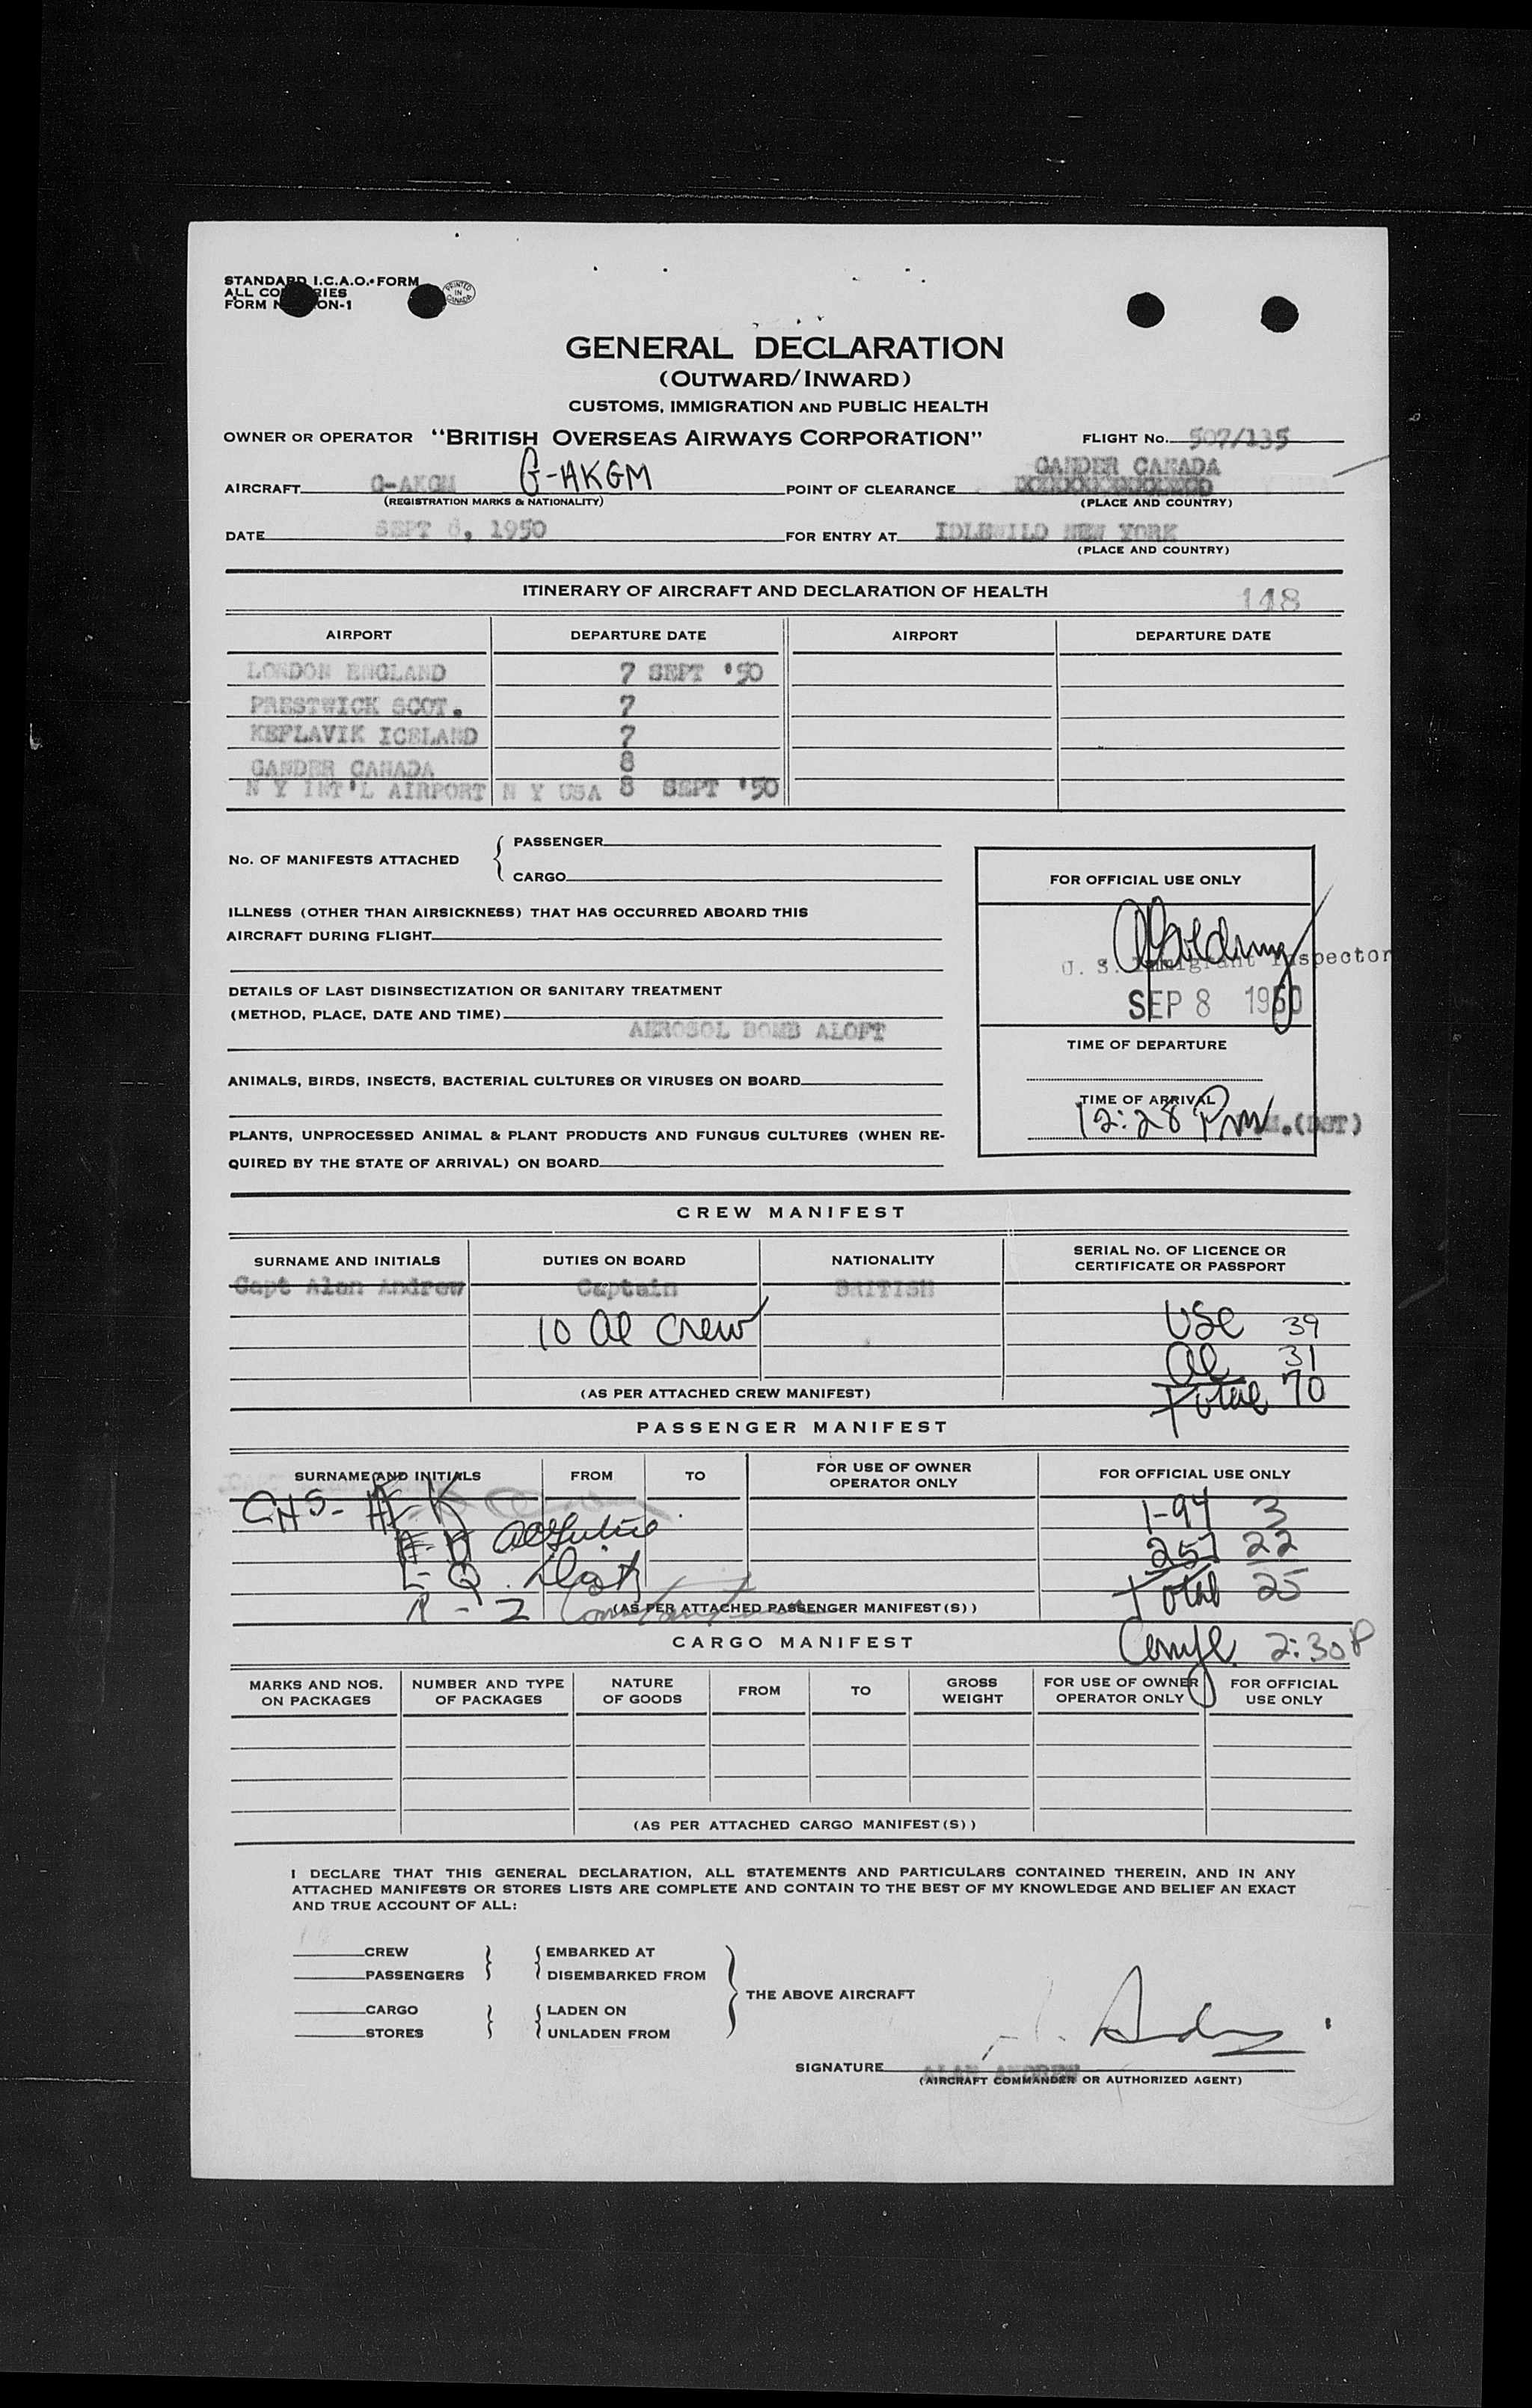 STANDARD I.C.A.O. FORM
ALL COUNTRIES
FORM ON-1
PRINTED IN CANADA
GENERAL DECLARATION
(OUTWARD/INWARD)
CUSTOMS, IMMIGRATION AND PUBLIC HEALTH
OWNER OR OPERATOR "BRITISH OVERSEAS AIRWAYS CORPORATION" FLIGHT No. 507/135
GANDER CANADA
AIRCRAFT G-AKGM G-AKGM POINT OF CLEARANCE
(REGISTRATION MARKS & NATIONALITY) (PLACE AND COUNTRY)
DATE SEPT 8, 1950 FOR ENTRY AT IDLEWILD NEW YORK
(PLACE AND COUNTRY)
ITINERARY OF AIRCRAFT AND DECLARATION OF HEALTH 148
AIRPORT DEPARTURE DATE AIRPORT DEPARTURE DATE
LONDON ENGLAND 7 SEPT '50
PRESTWICK SCOT. 7
KEFLAVIK ICELAND 7
GANDER CANADA 8
N Y INT'L AIRPORT N Y USA 8 SEPT '50
No. OF MANIFESTS ATTACHED
PASSENGER
CARGO
ILLNESS (OTHER THAN AIRSICKNESS) THAT HAS OCCURRED ABOARD THIS
AIRCRAFT DURING FLIGHT
DETAILS OF LAST DISINSECTIZATION OR SANITARY TREATMENT
(METHOD, PLACE, DATE AND TIME)
AEROSOL BOMB ALOFT
ANIMALS, BIRDS, INSECTS, BACTERIAL CULTURES OR VIRUSES ON BOARD
PLANTS, UNPROCESSED ANIMAL & PLANT PRODUCTS AND FUNGUS CULTURES (WHEN RE-
QUIRED BY THE STATE OF ARRIVAL) ON BOARD
FOR OFFICIAL USE ONLY
U. S. Immigrant Inspector
SEP 8 1950
TIME OF DEPARTURE
TIME OF ARRIVAL
12:28 Pm M.(DST)
CREW MANIFEST
SURNAME AND INITIALS DUTIES ON BOARD NATIONALITY SERIAL No. OF LICENCE OR
CERTIFICATE OR PASSPORT
Capt Alan Andrew Captain BRITISH
10 Al Crew USC 39
Al 31
(AS PER ATTACHED CREW MANIFEST) Total 70
PASSENGER MANIFEST
SURNAME AND INITIALS FROM TO FOR USE OF OWNER
OPERATOR ONLY FOR OFFICIAL USE ONLY
1-94 3
257 22
L-Q Total 25
R-Z (AS PER ATTACHED PASSENGER MANIFEST(S))
CARGO MANIFEST 2:30P
MARKS AND NOS.
ON PACKAGES NUMBER AND TYPE
OF PACKAGES NATURE
OF GOODS FROM TO GROSS
WEIGHT FOR USE OF OWNER
OPERATOR ONLY FOR OFFICIAL
USE ONLY
(AS PER ATTACHED CARGO MANIFEST(S))
I DECLARE THAT THIS GENERAL DECLARATION, ALL STATEMENTS AND PARTICULARS CONTAINED THEREIN, AND IN ANY
ATTACHED MANIFESTS OR STORES LISTS ARE COMPLETE AND CONTAIN TO THE BEST OF MY KNOWLEDGE AND BELIEF AN EXACT
AND TRUE ACCOUNT OF ALL:
CREW EMBARKED AT
PASSENGERS DISEMBARKED FROM
THE ABOVE AIRCRAFT
CARGO LADEN ON
STORES UNLADEN FROM
SIGNATURE ALAN ANDREW
(AIRCRAFT COMMANDER OR AUTHORIZED AGENT)